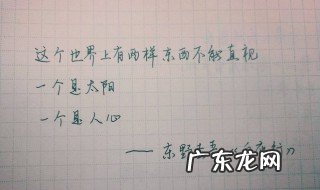 这个世界上有两样东西不能直视
一个是太阳
一个是人心
—— 东野
广东龙网